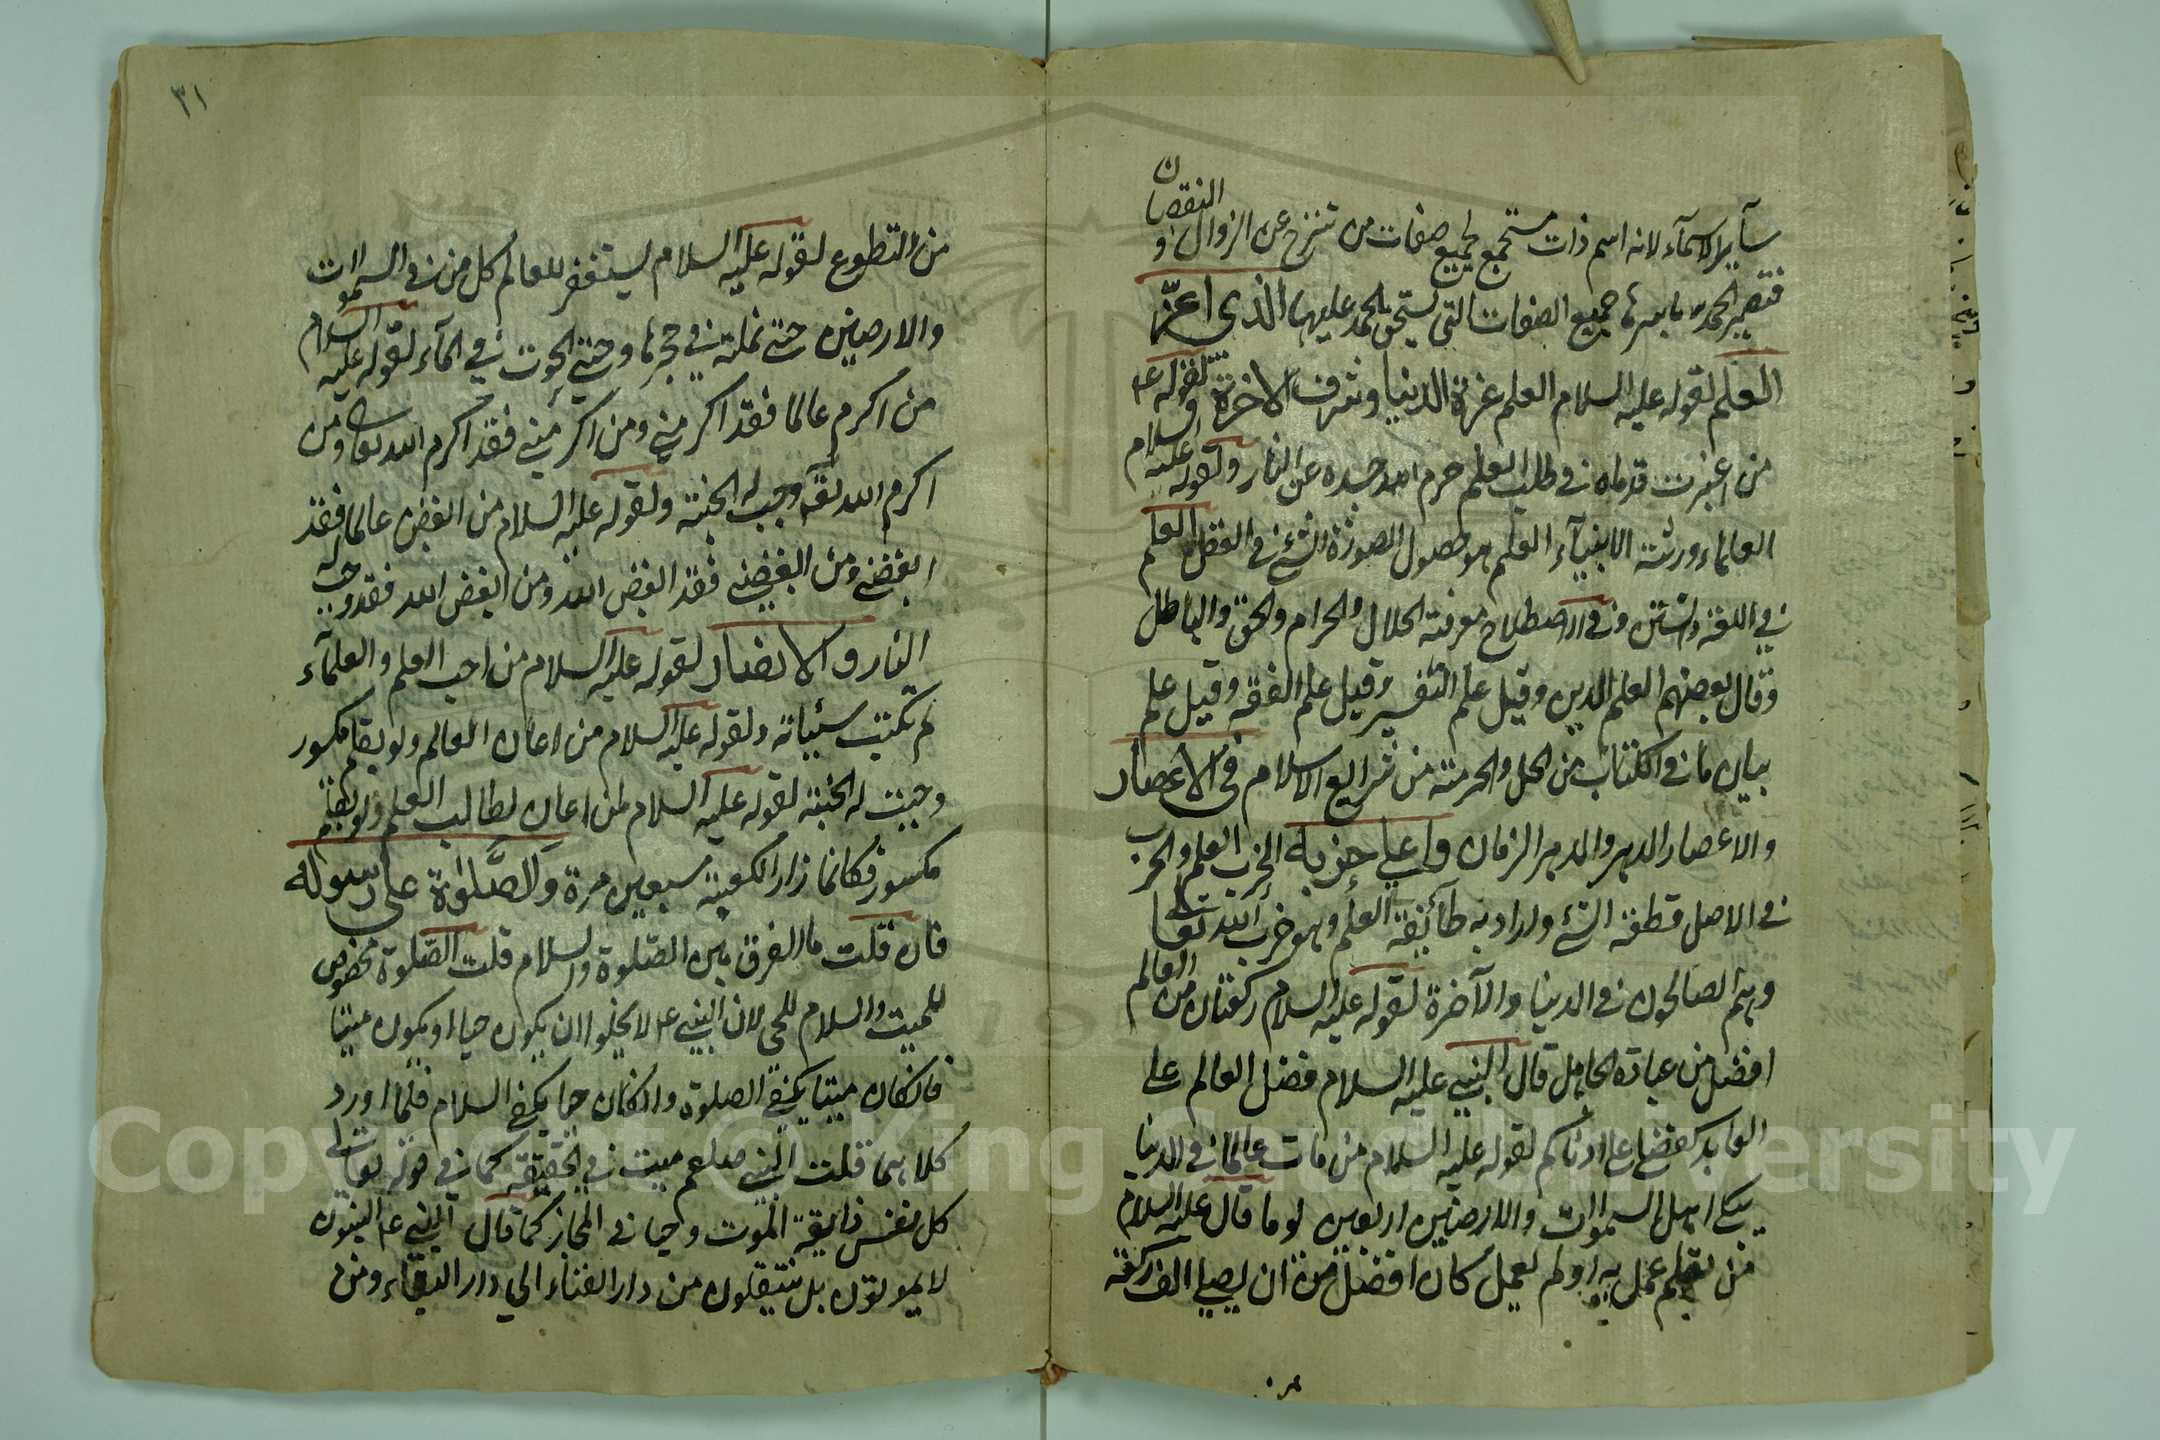 سآير الاسمآء لانه اسم ذات مستجمع لجميع صفات من تنزه عن الزوال و النقصان
فتصير الحمد باسرها جميع الصفات التي يستحق الحمد عليها الذى اعزّ
العلم لقوله عليه السلام العلم عزة الدنيا وشرف الاخرة ولقوله عم
من اغبرت قدماه في طلب العلم حرم الله جسده عن النار ولقوله عليه السلام
العالماء ورثة الانبيآء العلم هو حصول الصورة الشئ في العقل العلم
في اللغة وفي الاصطلاح معرفة الحلال والحرام والحق والباطل
وقال بعضهم العلم الدين وقيل علم التفسير وقيل علم الفقه وقيل علم
بيان ما في الكتاب من الحل والحرمة من شرايع الاسلام في الاعصار
والاعصار الدهر والدهر الزمان واعلى حزبه الحزب العلم والحزب
في الاصل قطعة الشئ واراد به طآئفة العلم وهو حزب الله تعالى
وهم الصالحون في الدنيا والآخرة لقوله عليه السلام ركعتان من العالم
افضل من عبادة الجاهل قال النبي عليه السلام فضل العالم على
العابد كفضلي على ادناكم لقوله عليه السلام من مات عالما في الدنيا
يبكى اهل السموات والارضين اربعين يوما قال عليه السلام
من تعلم عمل به او لم يعمل كان افضل من ان يصلي الف ركعة
من
٣١
من التطوع لقوله عليه السلام ليستغفر للعالم كل من في السموات
والارضين حتى نملة في حجرها وحتى الحوت في المآء لقوله عليه السلام
من اكرم عالما فقد اكرمني ومن اكرمني فقد اكرم الله تعالى ومن
اكرم الله تع وجب له الجنة ولقوله عليه السلام من ابغض عالما فقد
ابغضني ومن ابغضني فقد ابغض الله ومن ابغض الله فقد وجب له
النار والانصار لقوله عليه السلام من احب العلم والعلمآء
لم تكتب سئياته ولقوله عليه السلام من اعان العالم ولو بقلم مكسور
وجبت له الجنة لقوله عليه السلام من اعان لطالب العلم ولو بقلم
مكسور فكانما زار الكعبة سبعين مرة والصَّلوٰة على رسوله
فان قلت ما الفرق بين الصّلوة والسلام قلت الصّلوة مخصوص
للميت والسلام للحي لان النبي عم لا يخلوا ان يكون حيا او يكون ميتا
فان كان ميتا يكفي الصلوة وان كان حيا يكفي السلام فلما اورد
كلاهما قلت النبي صلعم ميت في الحقيقة كما في قوله تعالى
كل نفس ذايقة الموت وحيا في المجاز كما قال النبي عم النبيون
لا يموتون بل ينتقلون من دار الفناء الى دار البقاء ومن
Copyright © King Saud University